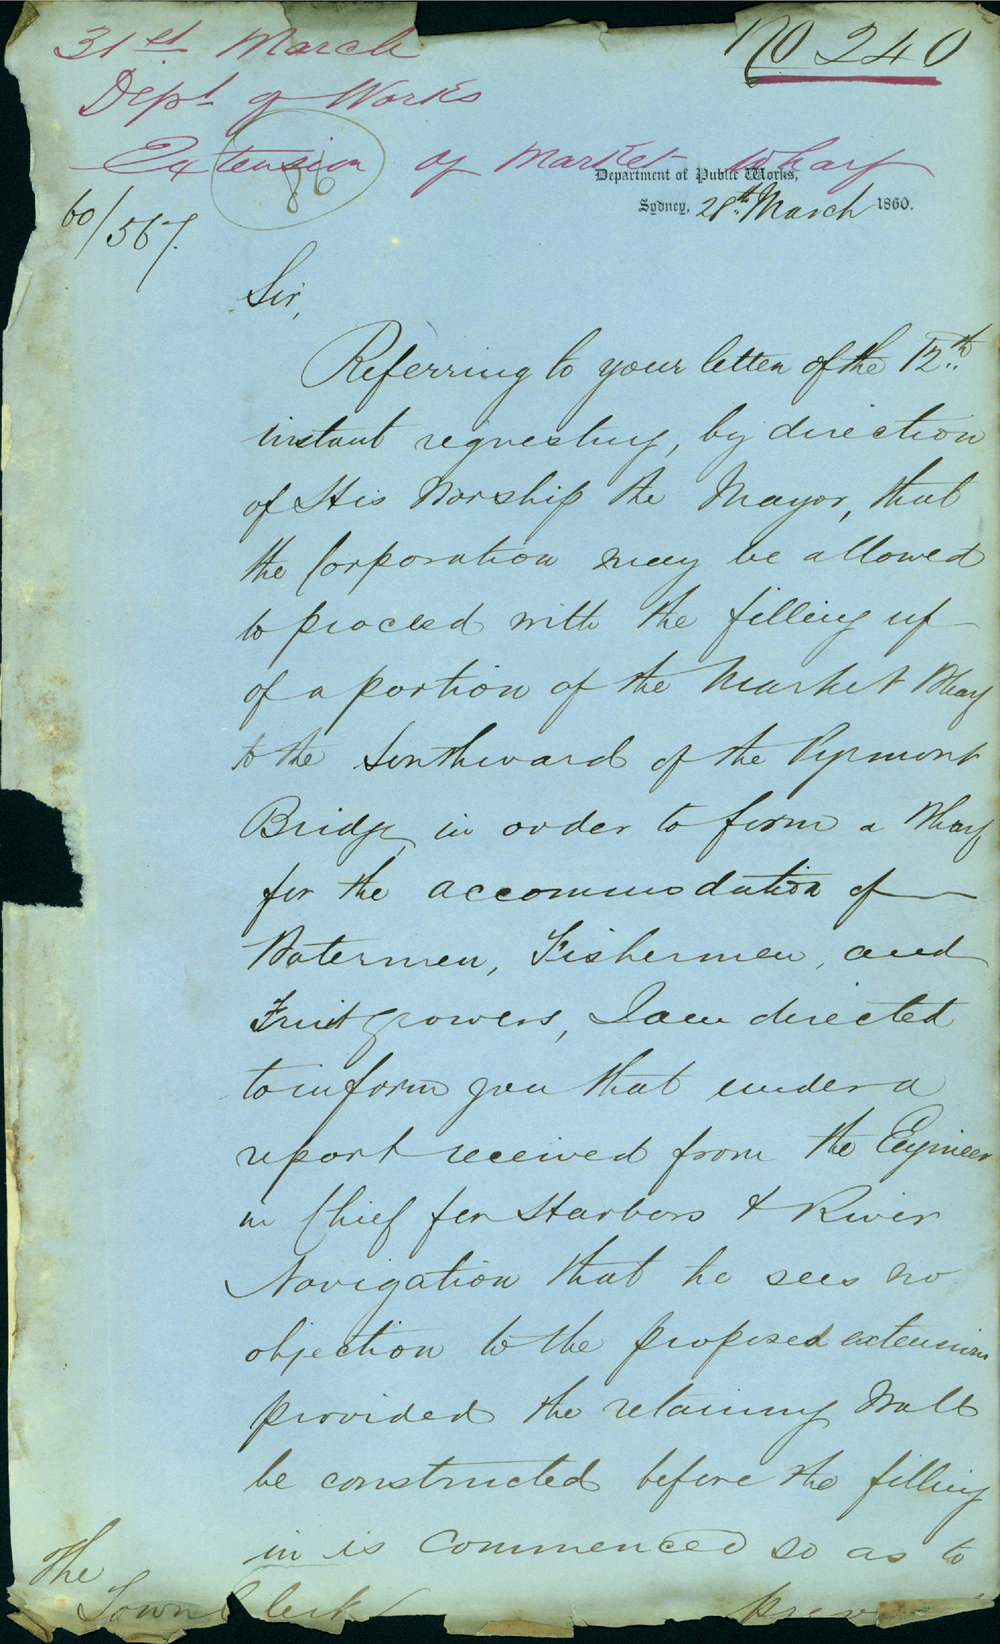 31st March
No 240
Dept of Works
Extension of Market Wharf
86
Department of Public Works,
60/567.
Sydney, 28th March 1860.
Sir,
Referring to your letter of the 12th
instant requesting, by direction
of His Worship the Mayor, that
the Corporation may be allowed
to proceed with the filling up
of a portion of the Market Wharf
to the Southward of the Pyrmont
Bridge, in order to form a Wharf,
for the accommodation of
Watermen, Fishermen, and
Fruitgrowers, I am directed
to inform you that under a
report received from the Engineer
in Chief for Harbors & River
Navigation that he sees no
objection to the proposed extension
provided the retaining Wall
be constructed before the filling
in is commenced so as to
The
Town Clerk